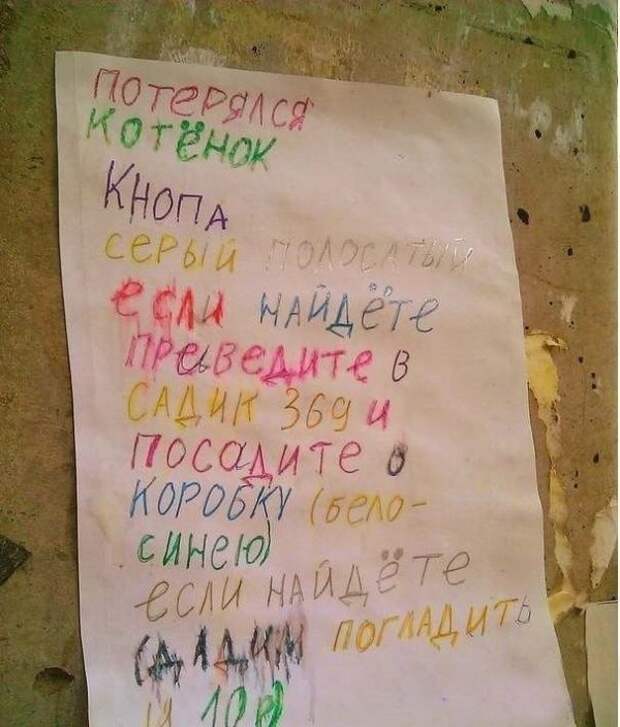 ПОТЕРЯЛСЯ
КОТЁНОК
КНОПА
СЕРЫЙ ПОЛОСАТЫЙ
ЕСЛИ НАЙДЁТЕ
ПРЕВЕДИТЕ В
САДИК 369 И
ПОСАДИТЕ О
КОРОБКУ (БЕЛО-
СИНЕЮ)
ЕСЛИ НАЙДЁТЕ
ПОГЛАДИТЬ
И 10р